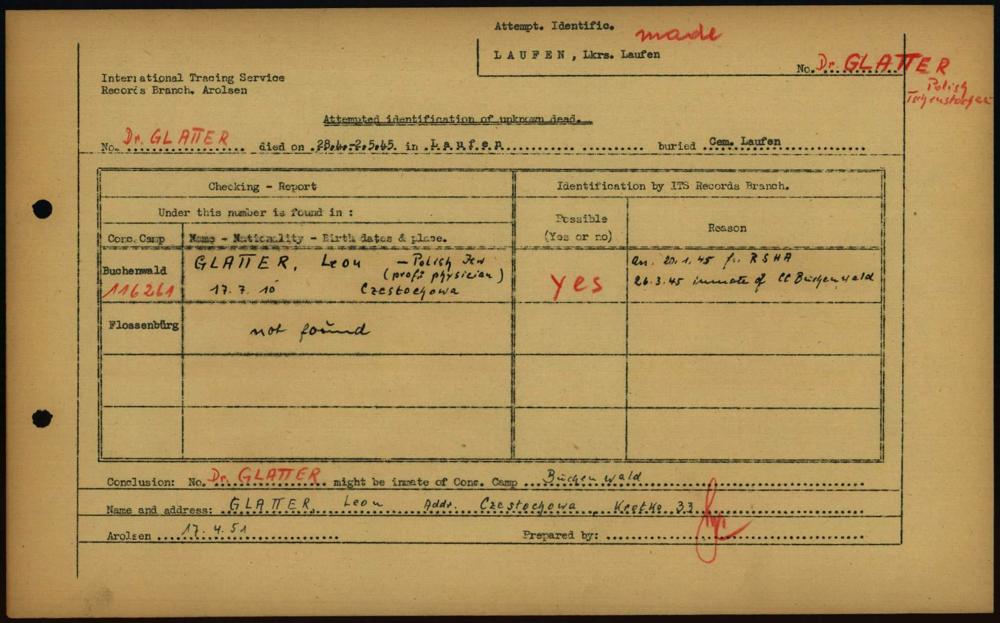 Attempt. Identific. made
LAUFEN, Lkrs. Laufen
No. Dr. GLATTER
Polish
International Tracing Service
Records Branch. Arolsen
Attempted identification of unknown dead.
No. Dr. GLATTER died on 28.4.-2.5.45. in Laufen buried Cem. Laufen
Checking - Report
Identification by ITS Records Branch.
Under this number is found in :
Possible
(Yes or no)
Reason
Conc. Camp
Name - Nationality - Birth dates & place.
Buchenwald
116261
GLATTER, Leon - Polish Jew
(prof: physician)
17.7.10 Czestochowa
yes
arr. 20.1.45 fr. RSHA
26.3.45 inmate of CC Buchenwald
Flossenbürg
not found
Conclusion: No. Dr. GLATTER might be inmate of Conc. Camp Buchenwald
Name and address: GLATTER, Leon Addr. Czestochowa, 33
Arolsen 17.4.51 Prepared by: